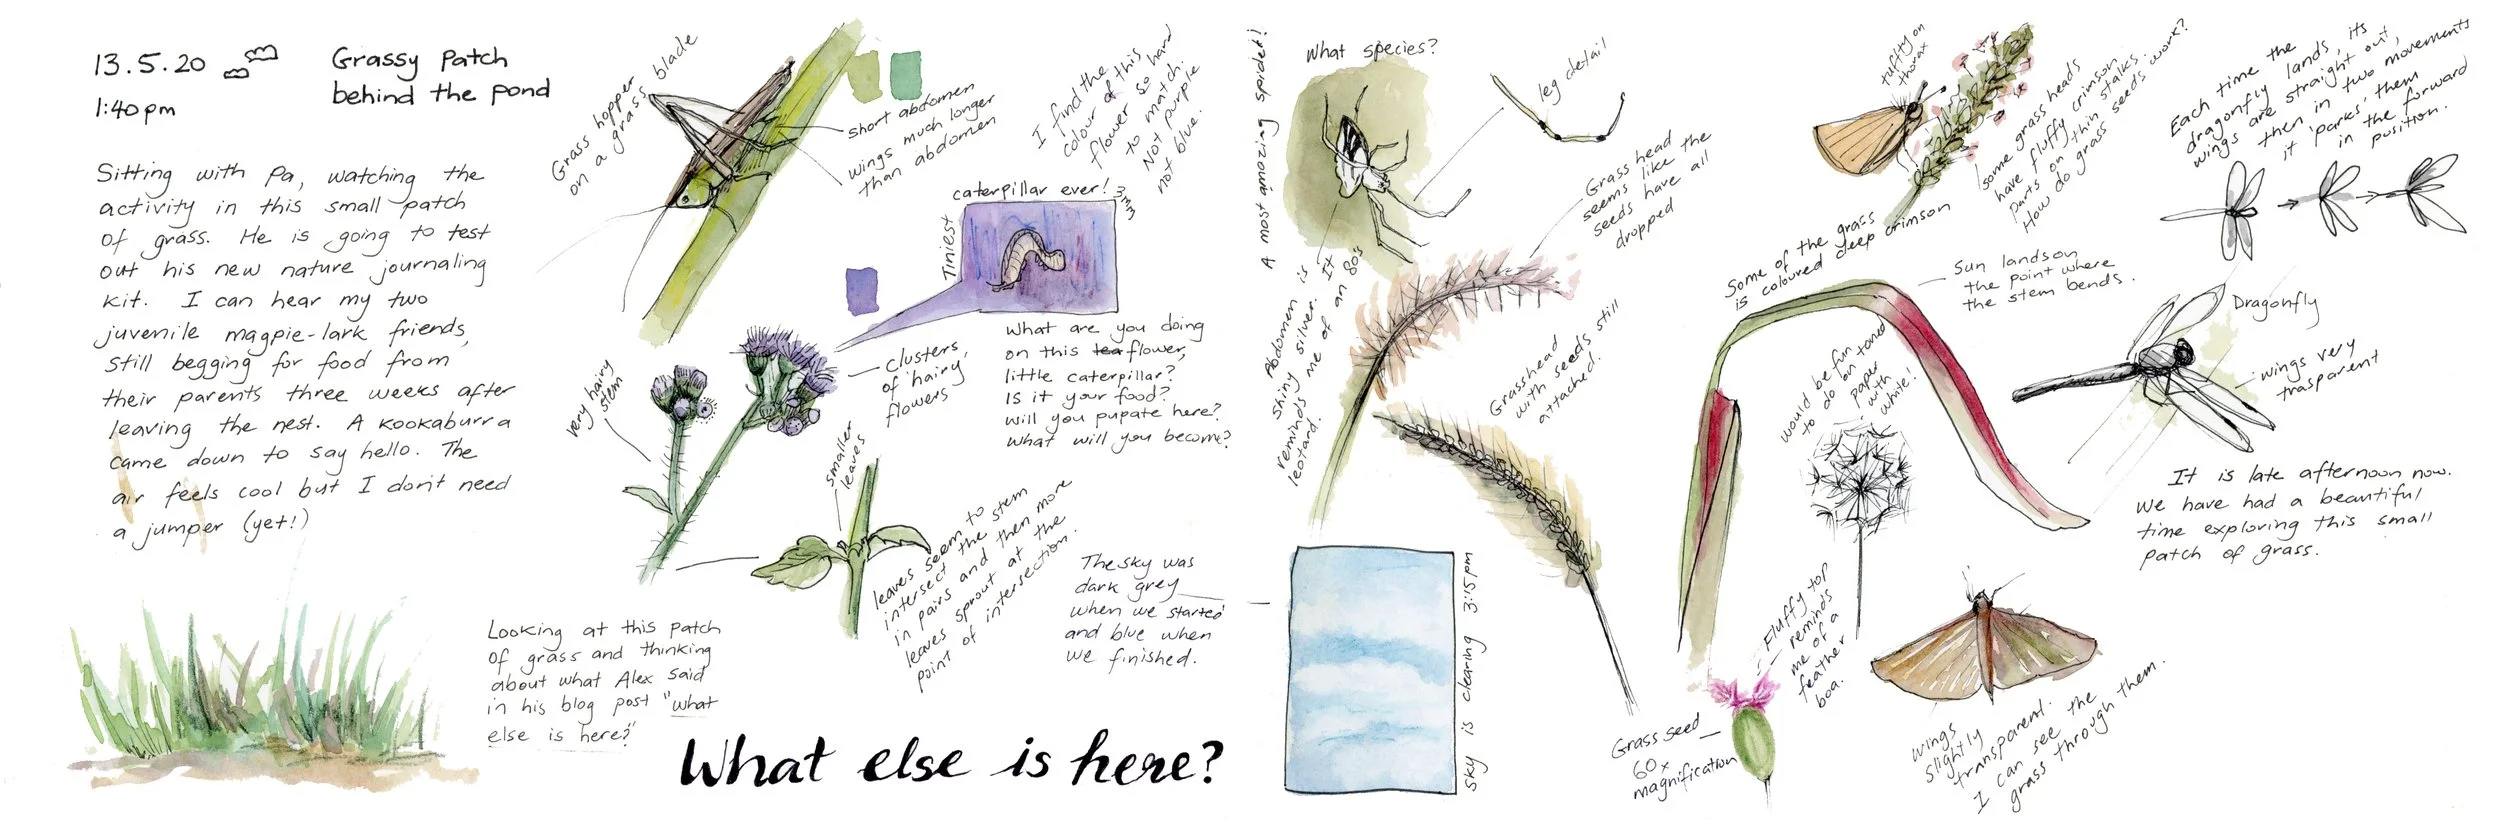 13.5.20
1:40pm
Grassy Patch
behind the pond
Sitting with Pa, watching the
activity in this small patch
of grass. He is going to test
out his new nature journaling
kit. I can hear my two
juvenile magpie-lark friends,
still begging for food from
their parents three weeks after
leaving the nest. A kookaburra
came down to say hello. The
air feels cool but I don't need
a jumper (yet!)
Looking at this patch
of grass and thinking
about what Alex said
in his blog post "what
else is here?"
What else is here?
Grass hopper
on a grass blade
short abdomen
wings much longer
than abdomen
I find the
colour of this
flower so hard
to match.
Not purple
not blue.
Tiniest
caterpillar ever!
3mm
What are you doing
on this tea flower,
little caterpillar?
Is it your food?
will you pupate here?
what will you become?
very hairy
stem
clusters
of 'hairy'
flowers
smaller
leaves
leaves seem to
intersect the stem
in pairs and then more
leaves sprout at the
point of intersection.
The sky was
dark grey
when we started
and blue when
we finished.
A most amazing spider!
What species?
leg detail
Abdomen is
shiny silver. It
reminds me of an 80's
leotard.
Grass head
seems like the
seeds have all
dropped
Grasshead
with seeds still
attached.
Sky is clearing 3:15pm
tufty on
thorax
some grass heads
have fluffy crimson
parts on thin stalks.
How do grass seeds work?
Some of the grass
is coloured deep crimson
Sun lands on
the point where
the stem bends.
would be fun
to do on toned
paper
with
white!
Fluffy top
reminds
me of a
feather
boa.
Grass seed
60x
magnification
Each time the
dragonfly lands, its
wings are straight out,
then in two movements
it 'parks' them
in the forward
position.
Dragonfly
wings very
trasparent
It is late afternoon now.
We have had a beautiful
time exploring this small
patch of grass.
wings
slightly
transparent.
I can see the
grass through them.